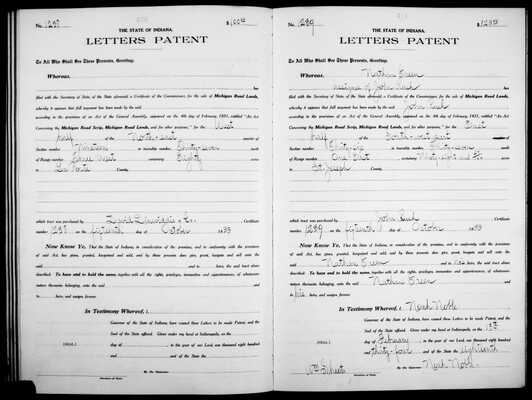 No. 1237 $100.00
THE STATE OF INDIANA.
LETTERS PATENT
To All Who Shall See These Presents, Greeting.
Whereas,
has
filed with the Secretary of State, of the State aforesaid, a Certificate of the Commissioner, for the sale of Michigan Road Lands,
whereby it appears that full payment has been made by the said
according to the provisions of an Act of the General Assembly, approved on the 4th day of February, 1831, entitled "An Act
Concerning the Michigan Road Scrip, Michigan Road Lands, and for other purposes," for the West
half of the North east quarter of
Section number Nineteen in township number Thirty-seven
of Range number Three West containing Eighty acres
in La Porte County,
which tract was purchased by Certificate
number 1237 on the fifteenth day of October 1833
Now Know Ye, That the State of Indiana, in consideration of the premises, and in conformity with the provisions
of said Act, has given, granted, bargained and sold, and by these presents does give, grant, bargain and sell unto the
said and to heirs, the said tract above
described. To have and to hold the same, together with all the rights, privileges, immunities and appurtenances, of whatsoever
nature thereunto belonging, unto the said
and to heirs, and assigns forever.
In Testimony Whereof, I
Governor of the State of Indiana, have caused these Letters to be made Patent, and the
Seal of the State affixed. Given under my hand at Indianapolis, on the
[SEAL] day of in the year of our Lord, one thousand eight hundred
and and of the State the
By the Governor:
Secretary of State.
No. 1239 $123.00
THE STATE OF INDIANA.
LETTERS PATENT
To All Who Shall See These Presents, Greeting.
Whereas, Nathan Green
assignee of John Rush has
filed with the Secretary of State, of the State aforesaid, a Certificate of the Commissioner, for the sale of Michigan Road Lands,
whereby it appears that full payment has been made by the said John Rush
according to the provisions of an Act of the General Assembly, approved on the 4th day of February, 1831, entitled "An Act
Concerning the Michigan Road Scrip, Michigan Road Lands, and for other purposes," for the East
half of the quarter of
Section number Thirty-six in township number Thirty-seven
of Range number One East containing Ninety eight and acres
in St Joseph County,
which tract was purchased by John Rush Certificate
number 1239 on the fifteenth day of October 1833
Now Know Ye, That the State of Indiana, in consideration of the premises, and in conformity with the provisions
of said Act, has given, granted, bargained and sold, and by these presents does give, grant, bargain and sell unto the
said Nathan Green and to his heirs, the said tract above
described. To have and to hold the same, together with all the rights, privileges, immunities and appurtenances, of whatsoever
nature thereunto belonging, unto the said Nathan Green
and to his heirs, and assigns forever.
In Testimony Whereof, I Noah Noble
Governor of the State of Indiana, have caused these Letters to be made Patent, and the
Seal of the State affixed. Given under my hand at Indianapolis, on the
[SEAL] day of February in the year of our Lord, one thousand eight hundred
and thirty-four and of the State the eighteenth
Wm Sheets By the Governor: Noah Noble
Secretary of State.